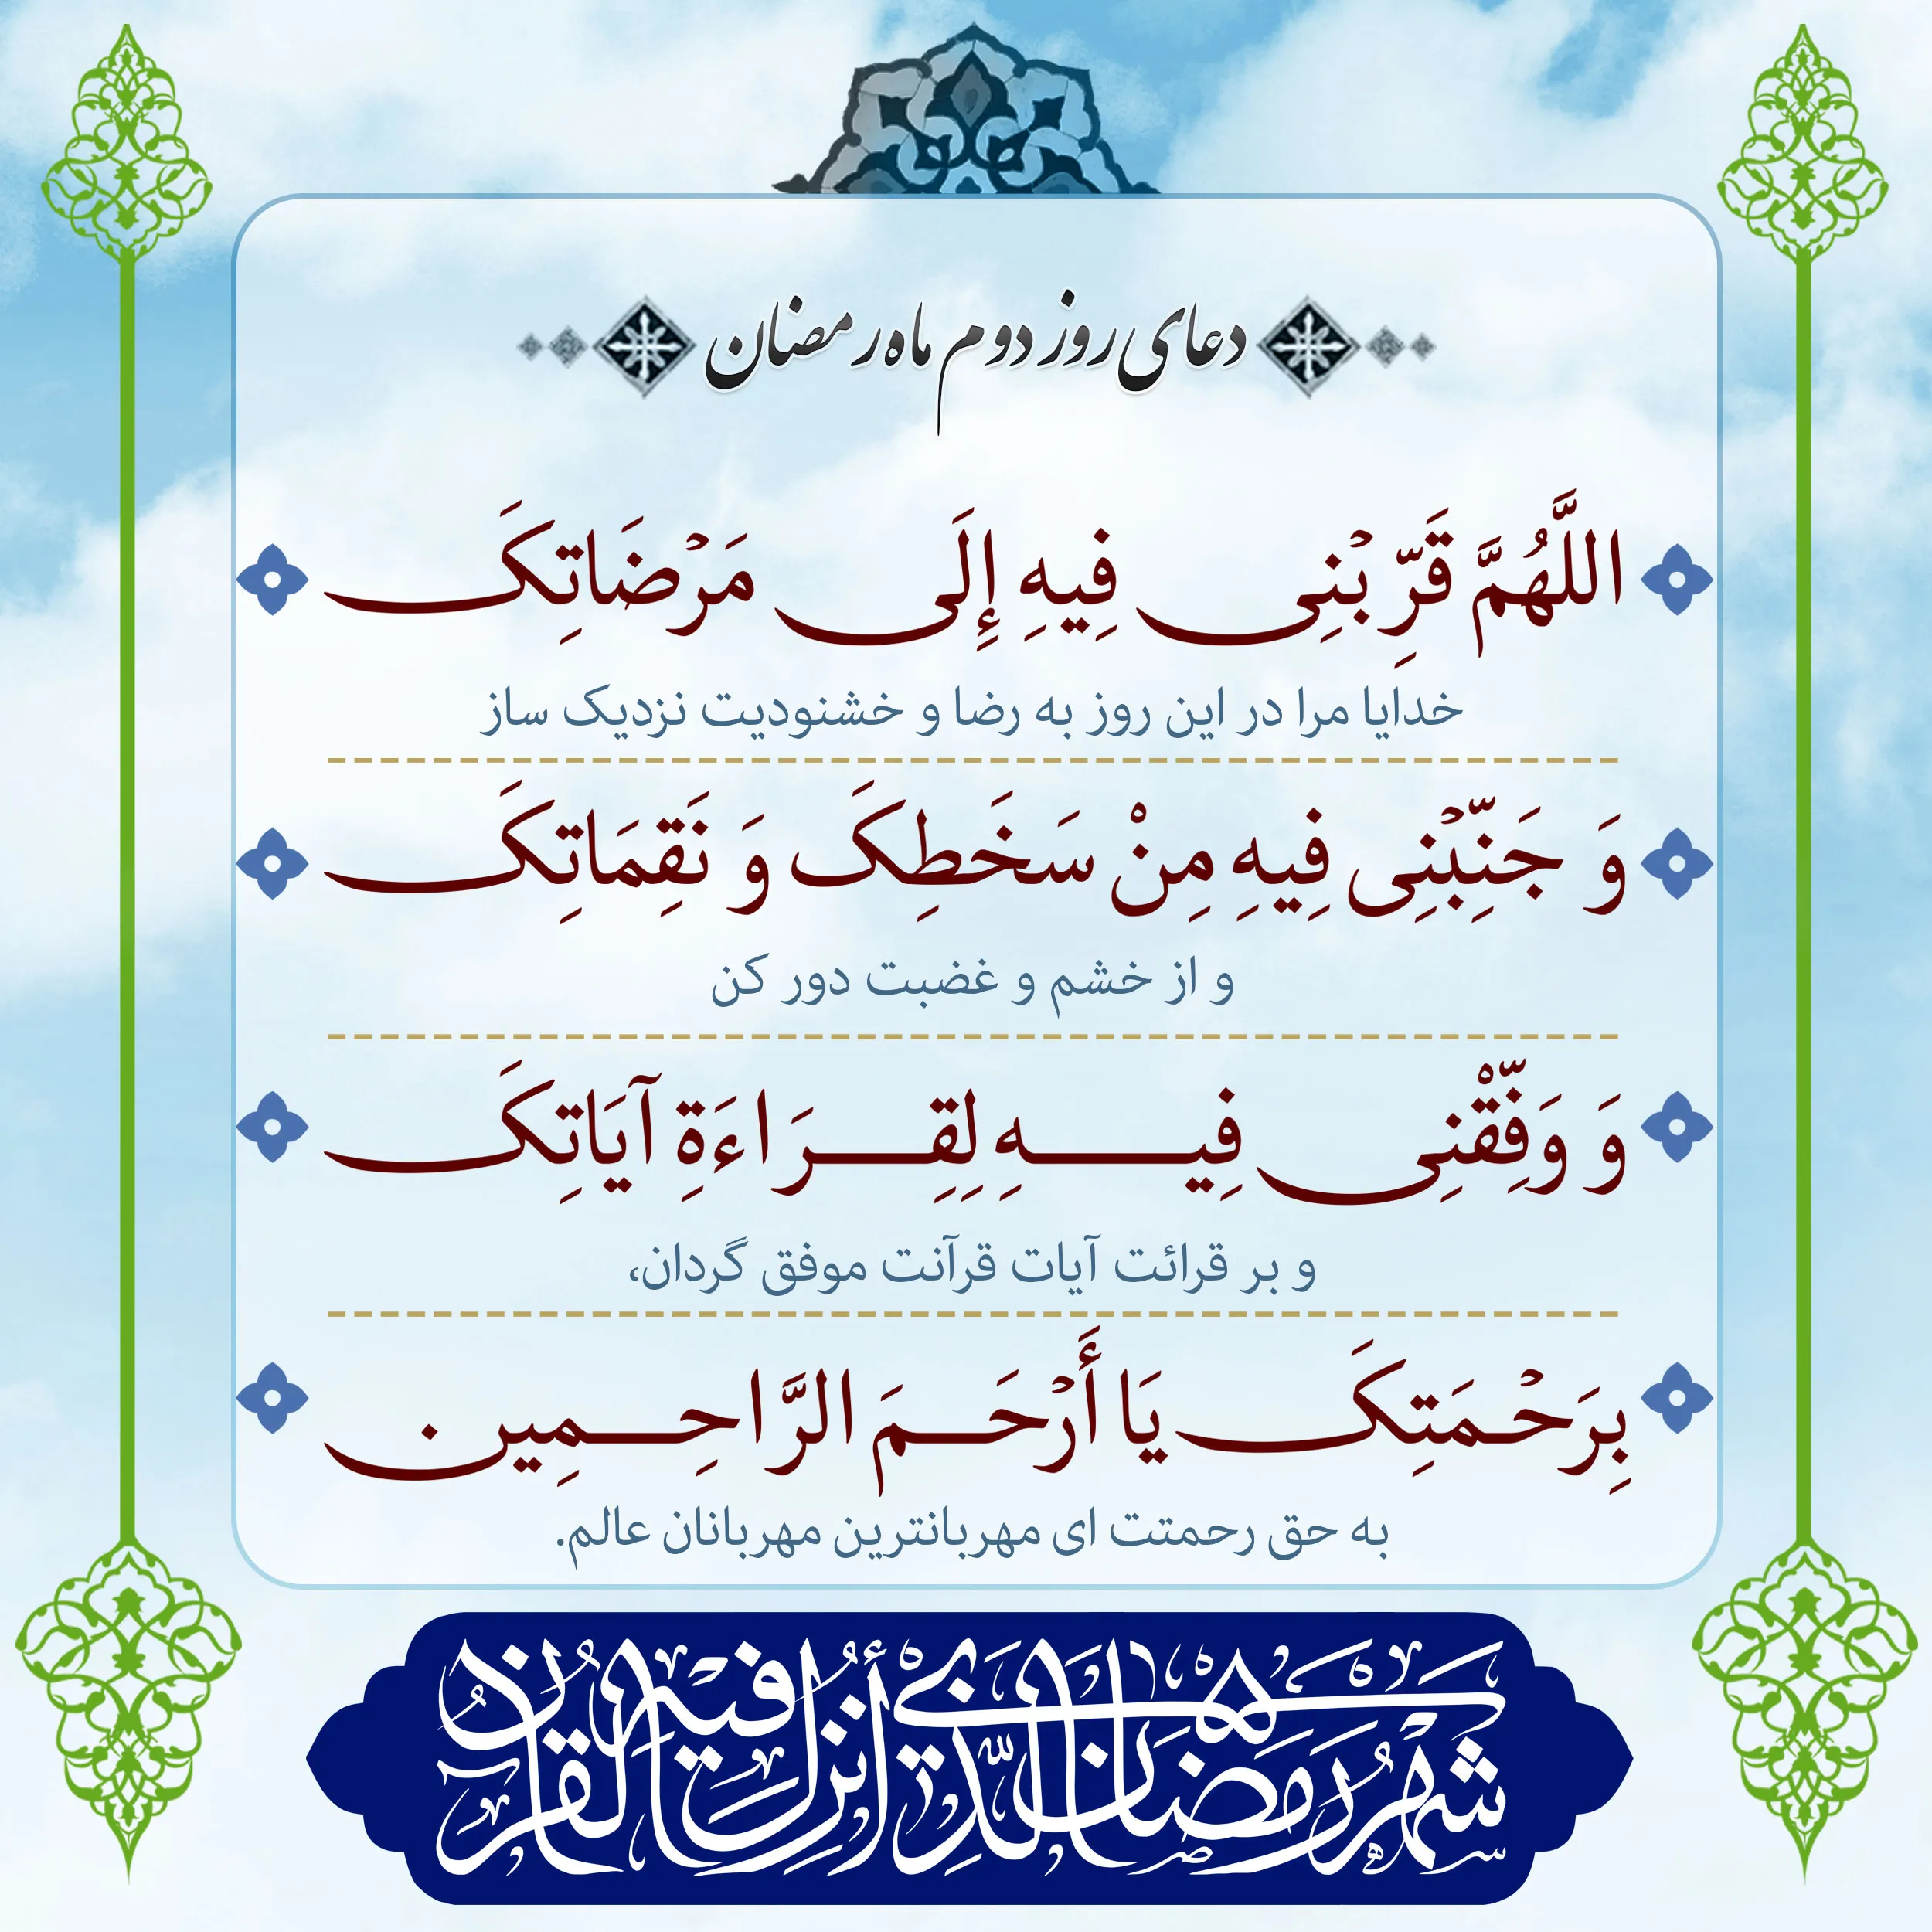 دعای روز دوم ماه رمضان
اللَّهُمَّ قَرِّبْنِی فِیهِ إِلَی مَرْضَاتِکَ
خدایا مرا در این روز به رضا و خشنودیت نزدیک ساز
وَ جَنِّبْنِی فِیهِ مِنْ سَخَطِکَ وَ نَقِمَاتِکَ
و از خشم و غضبت دور کن
وَ وَفِّقْنِی فِیهِ لِقِرَاءَةِ آیَاتِکَ
و بر قرائت آیات قرآنت موفق گردان،
بِرَحْمَتِکَ یَا أَرْحَمَ الرَّاحِمِین.
به حق رحمتت ای مهربانترین مهربانان عالم.
شهر رمضان الذی أنزل فیه القرآن